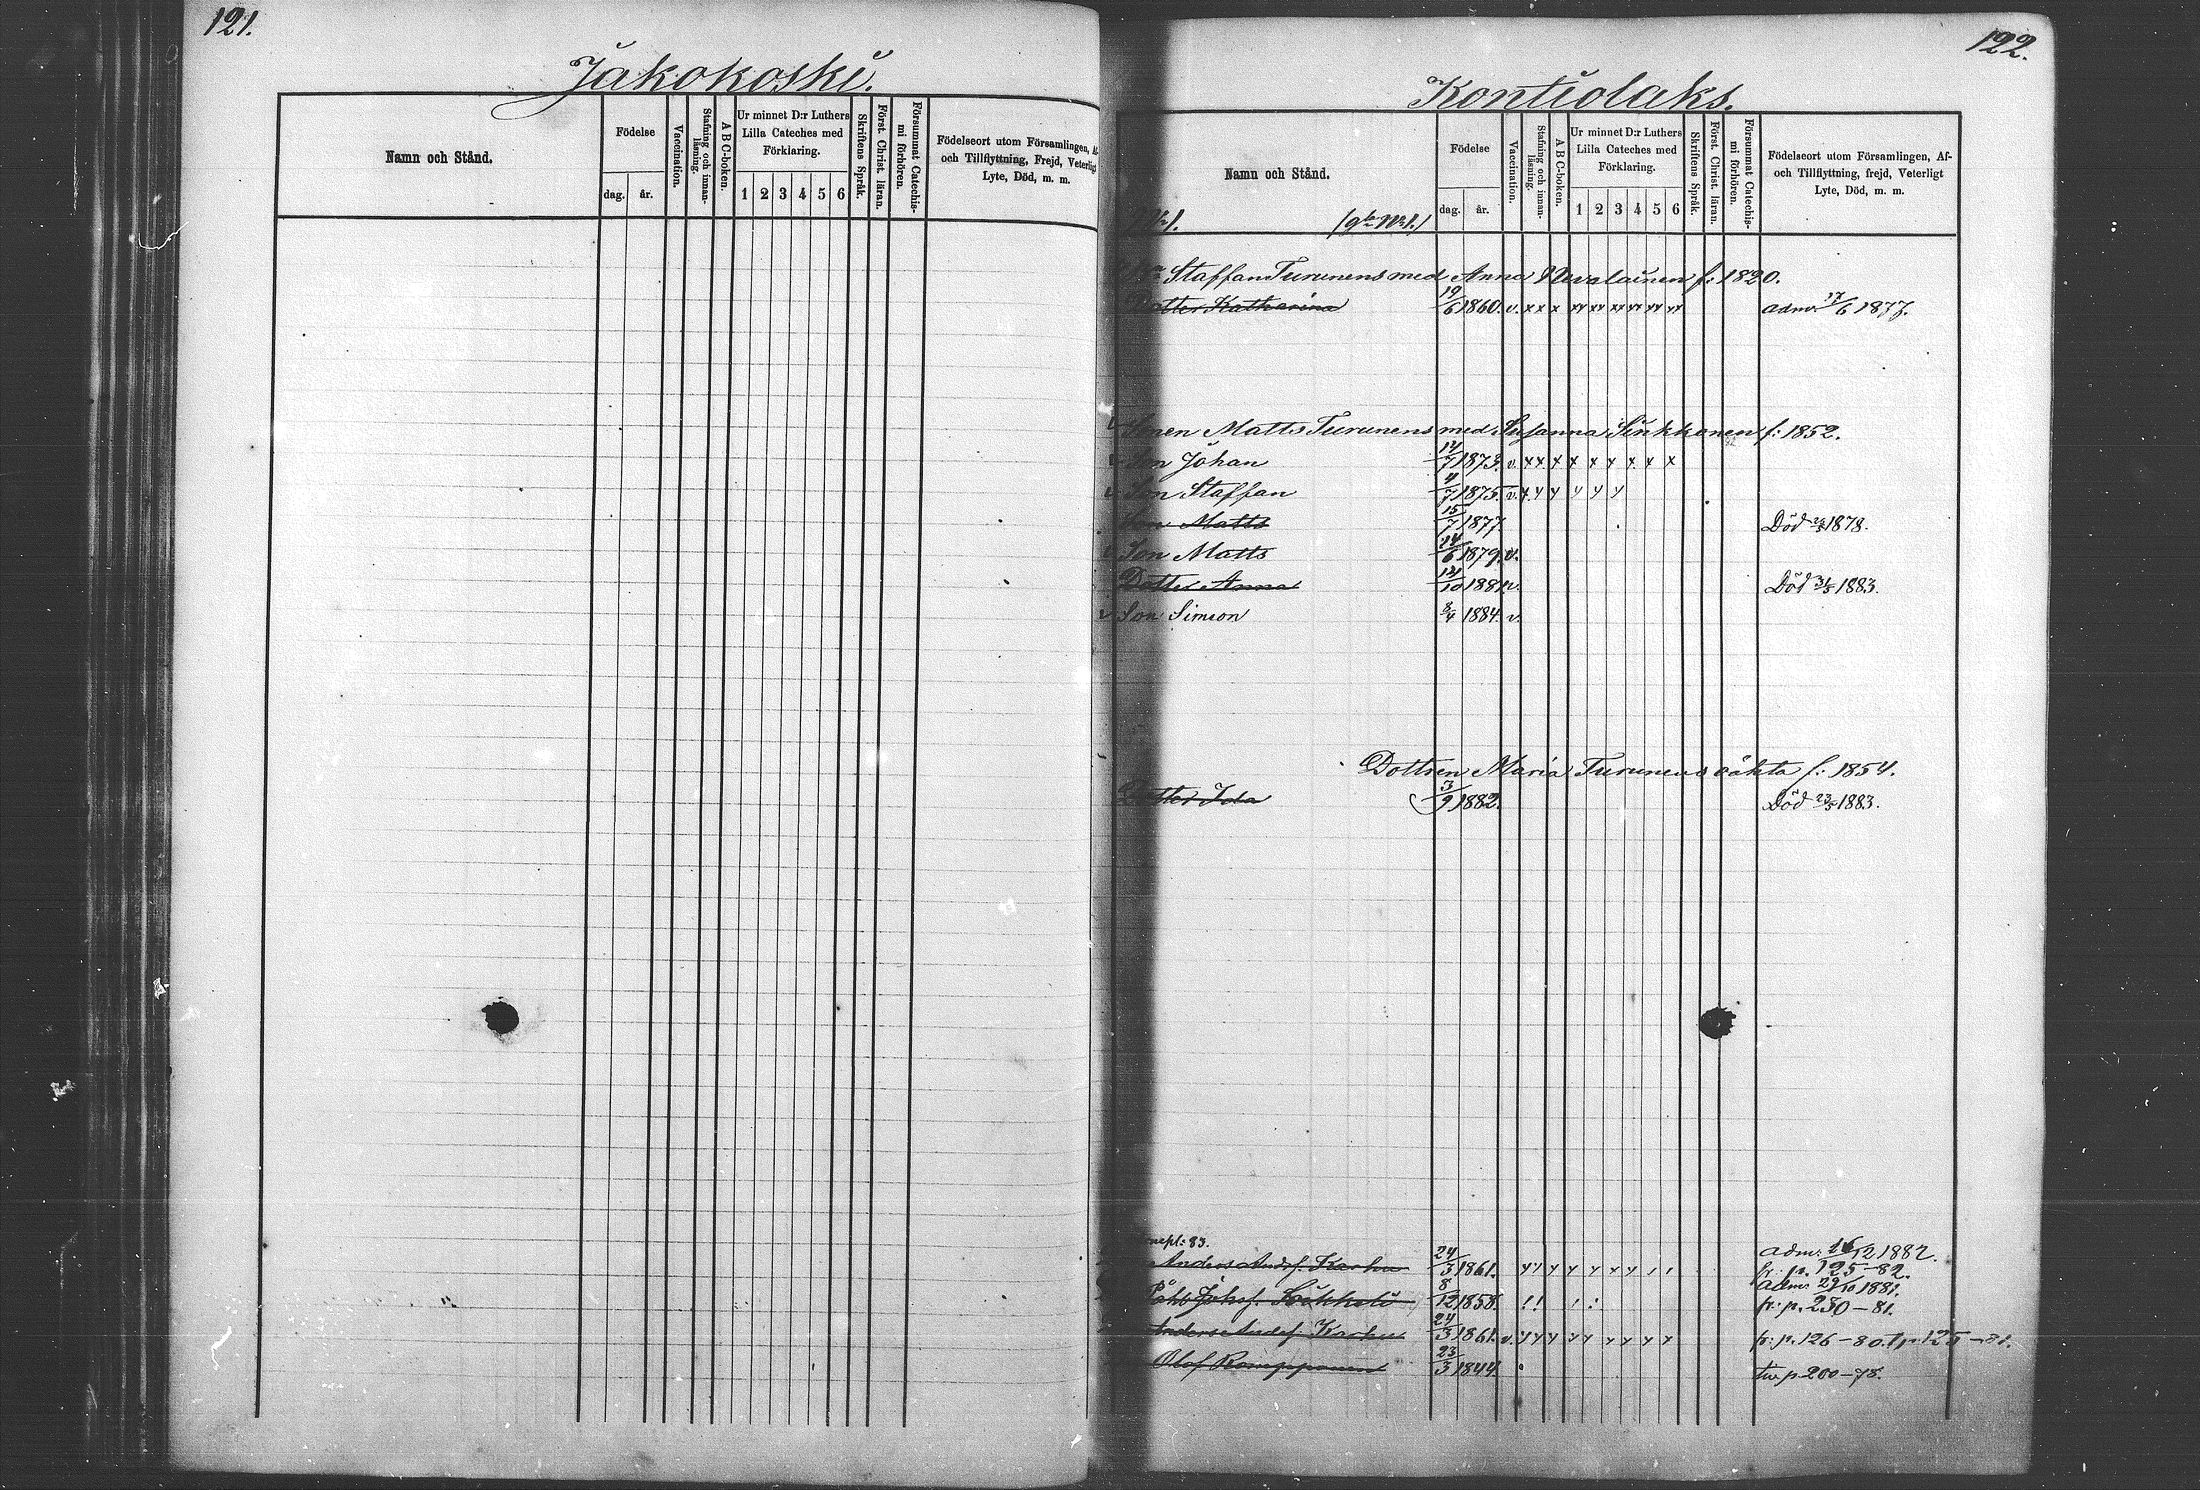 121.
Jakokoski.
Namn och Stånd.
Födelse
dag. år.
Vaccination.
Stafning och innan-
läsning.
A B C-boken.
Ur minnet D:r Luthers
Lilla Cateches med
Förklaring.
1 2 3 4 5 6
Skriftens Språk.
Först. Christ. läran.
Försummat Catechis-
mi förhören.
Födelseort utom Församlingen, Af-
och Tillflyttning, Frejd, Veterligt
Lyte, Död, m. m.
122.
Kontiolaks.
Namn och Stånd.
Födelse
dag. år.
Vaccination.
Stafning och innan-
läsning.
A B C-boken.
Ur minnet D:r Luthers
Lilla Cateches med
Förklaring.
1 2 3 4 5 6
Skriftens Språk.
Först. Christ. läran.
Försummat Catechis-
mi förhören.
Födelseort utom Församlingen, Af-
och Tillflyttning, frejd, Veterligt
Lyte, Död, m. m.
Staffan Turunens med Anna Nevalainen f: 1820.
Dotter Katharina 19/6 1860. v. x x x xx xx xx xx xx xx adm. 17/6 1877.
Sonen Matts Turunens med Susanna Sinkkonen f: 1852.
Son Johan 14/7 1873. v. x x x x x x x x x
Son Staffan 4/7 1875. v. y y y y y y
Son Matts 15/7 1877 Död 1878.
Son Matts 14/6 1879. v.
Dotter Anna /10 1881 v. Död 31/5 1883.
Son Simeon 8/4 1884. v.
Dottren Maria Turunens oäkta f: 1854.
Dotter Ida 3/9 1882. Död 23/5 1883.
83.
adm: 16/12 1882.
Anders Andsf. Karhu 24/3 1861. y y y y y y y fr. p. 125-82.
adm 29/10 1881.
Påhl Johsf. 8/12 1858. fr: p. 230-81.
Anders Andsf. Karhu 24/3 1861. v. y y y y y y y y y fr: p. 126-80. t. p. 125-81.
Olof Romppanen 23/3 1844. p 200-78.